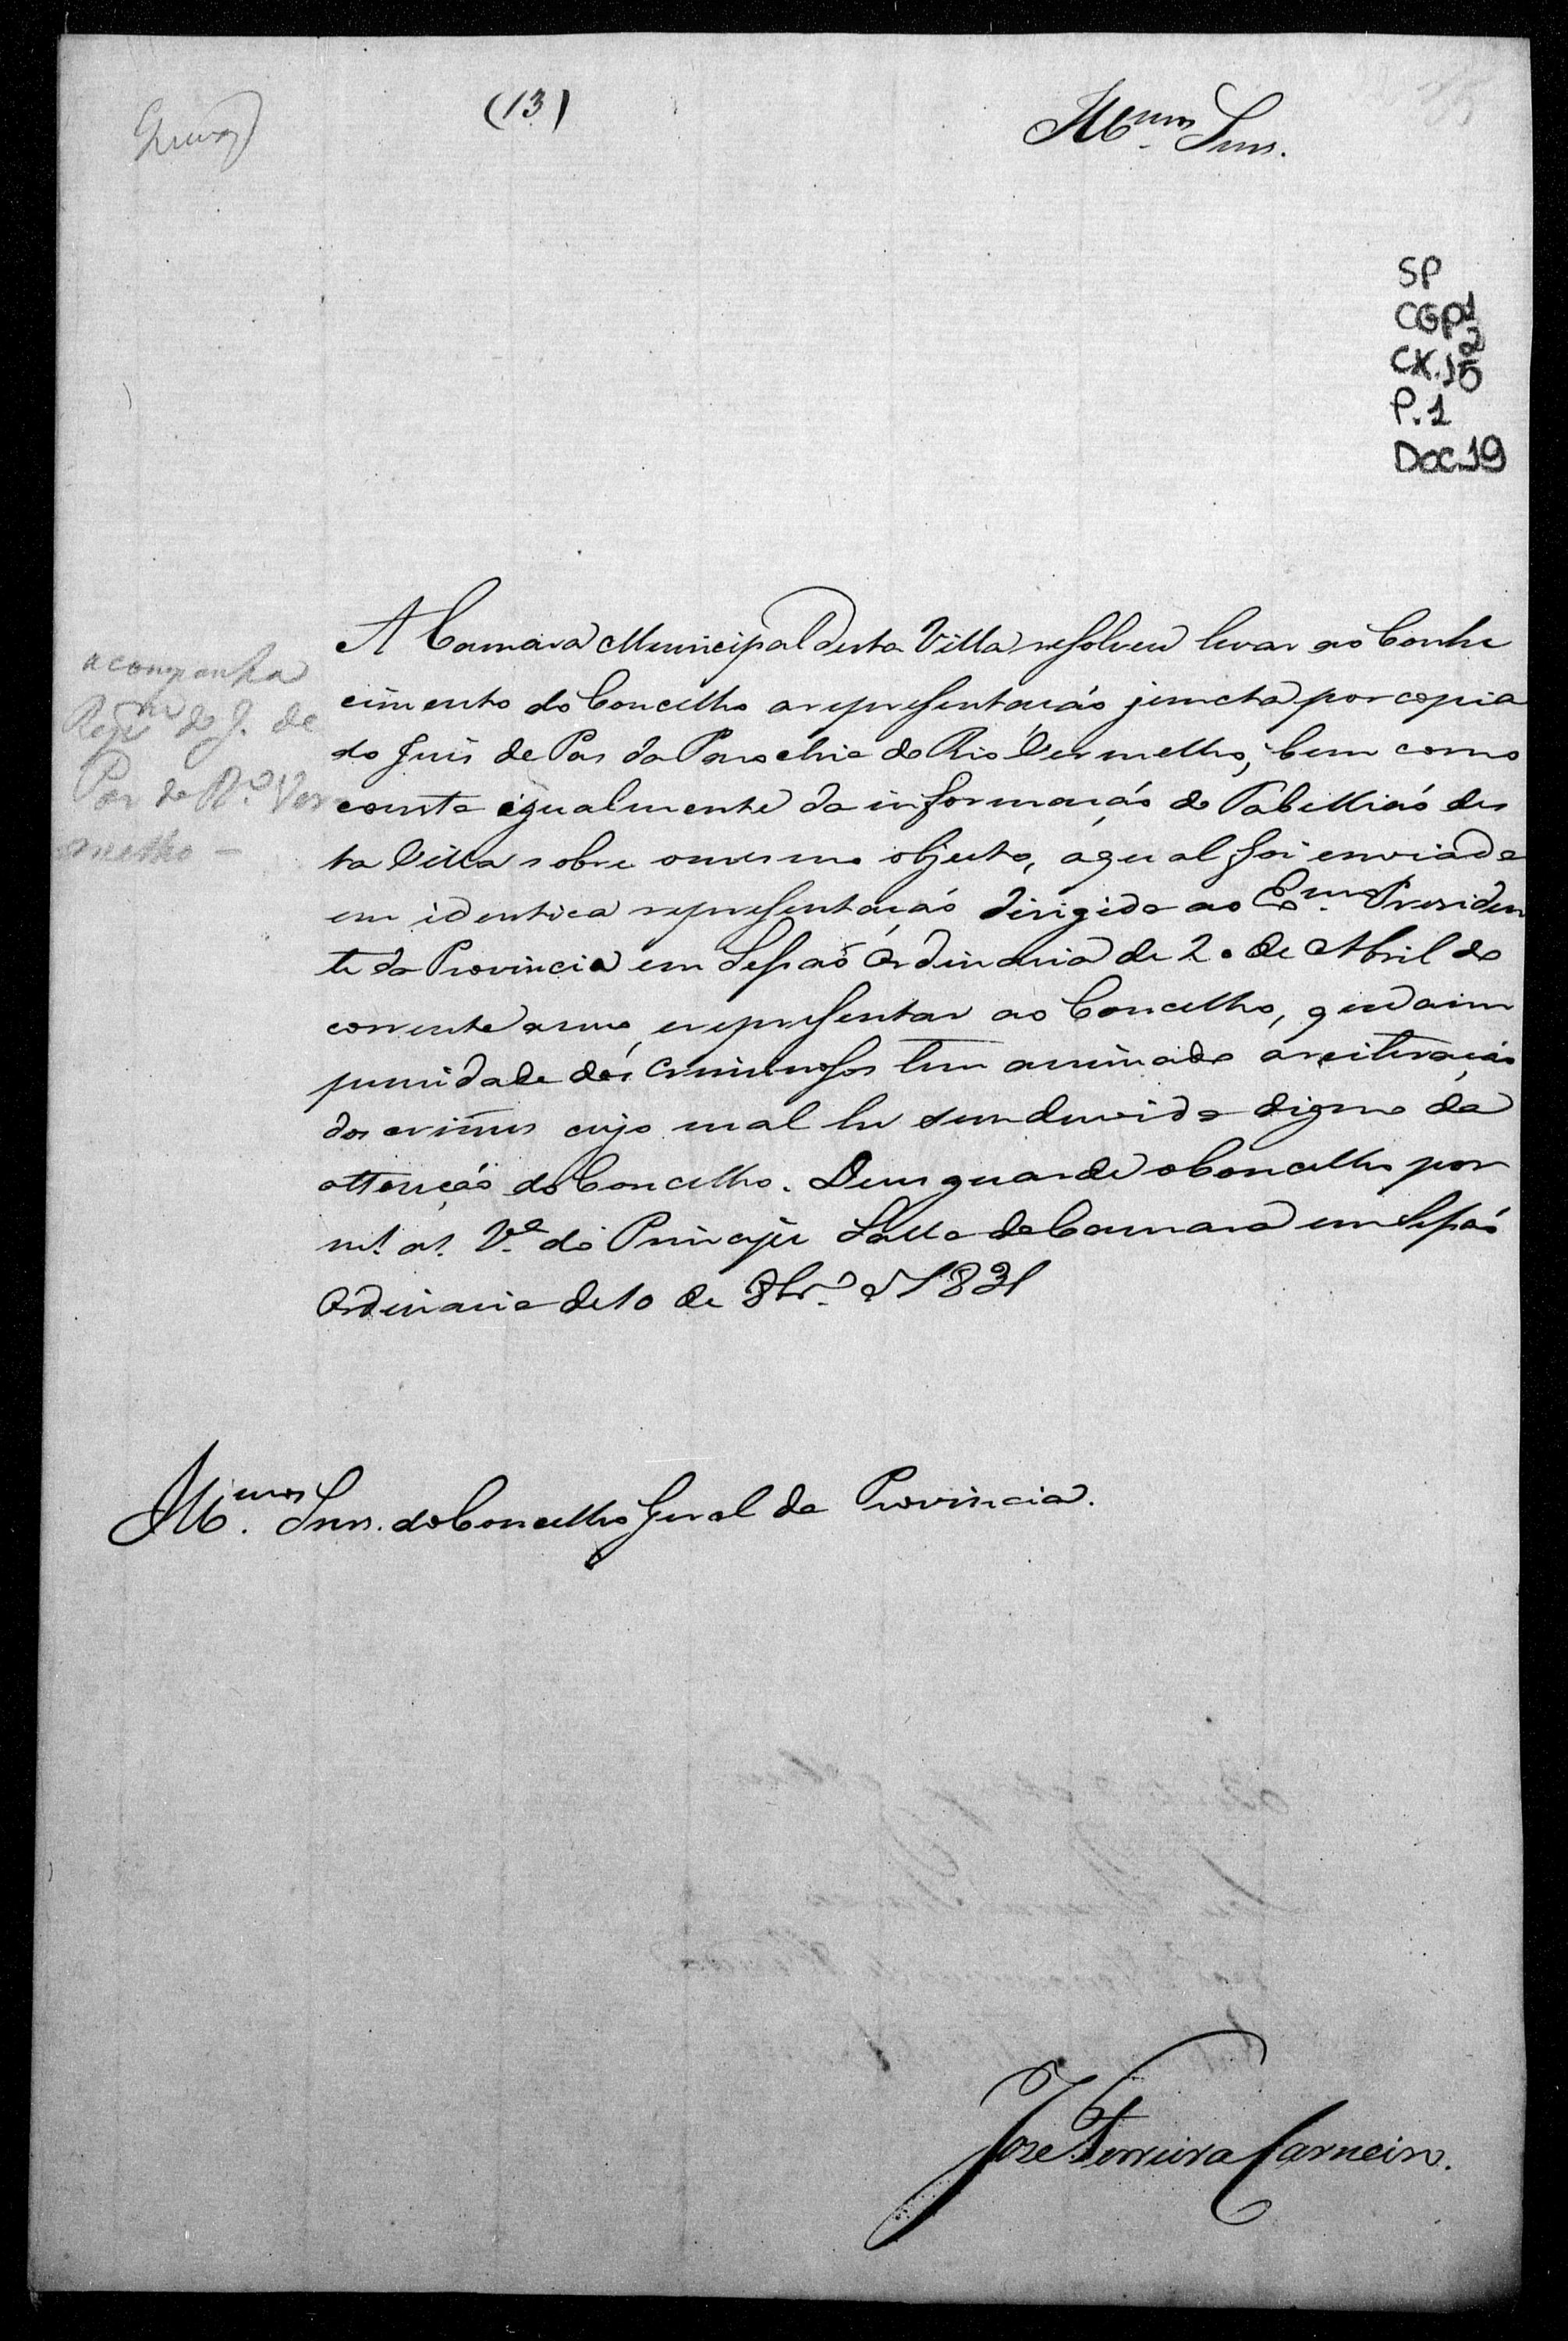 (13)
Ill.mos Snrs.
SP
CGP1
P.1
Doc.19
A Camara Municipal desta Villa resolveu levar ao Conhe
cimento do Concelho a representação juncta por copia
do Juis de Pas da Parochia do Rio Vermelho, bem como
consta igualmente da informação do Tabellião des
ta Villa sobre o mesmo objecto, a qual foi enviada
em identica representação dirigida ao Ex.mo Presiden
te da Provincia em Sessão Ordinaria de 20 de Abril do
corrente anno, e representar ao Concelho, que a im
punidade dos Criminosos tem animado a reiteração
dos crimes cujo mal he sem duvida digno da
attenção do Concelho. Deus guarde o Concelho por
m.s a.s V.a do Principe Salla da Camara em Sessão
Ordinaria de 10 de 8br.o d 1831
acompanha
do J. de
Paz do R.o Ver
melho -
Ill.mos Snrs. do Concelho Geral da Provincia.
Jose Ferreira Carneiro.